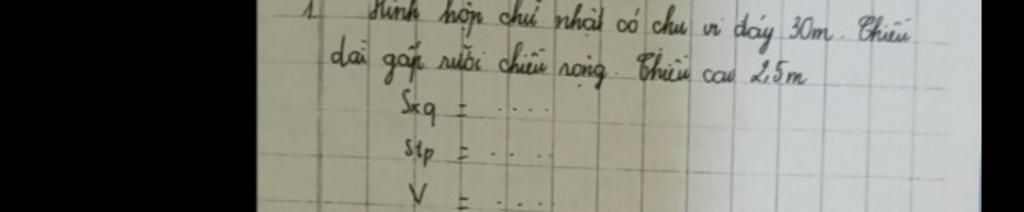 1. Hình hộp chữ nhật có chu vi đáy 30m. Chiều
dài gấp rưỡi chiều rộng. Chiều cao 2,5m
Sxq = ....
Stp = ....
V = ....